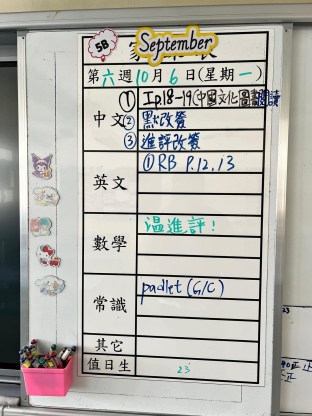 5B
September
第六週10月6日(星期一)
中文
① Ip.18-19(中國文化圖書閱讀
② 默改簽
③ 進評改簽
英文
① RB P.12, 13
數學
溫進評!
常識
padlet (G/C)
其它
值日生
23